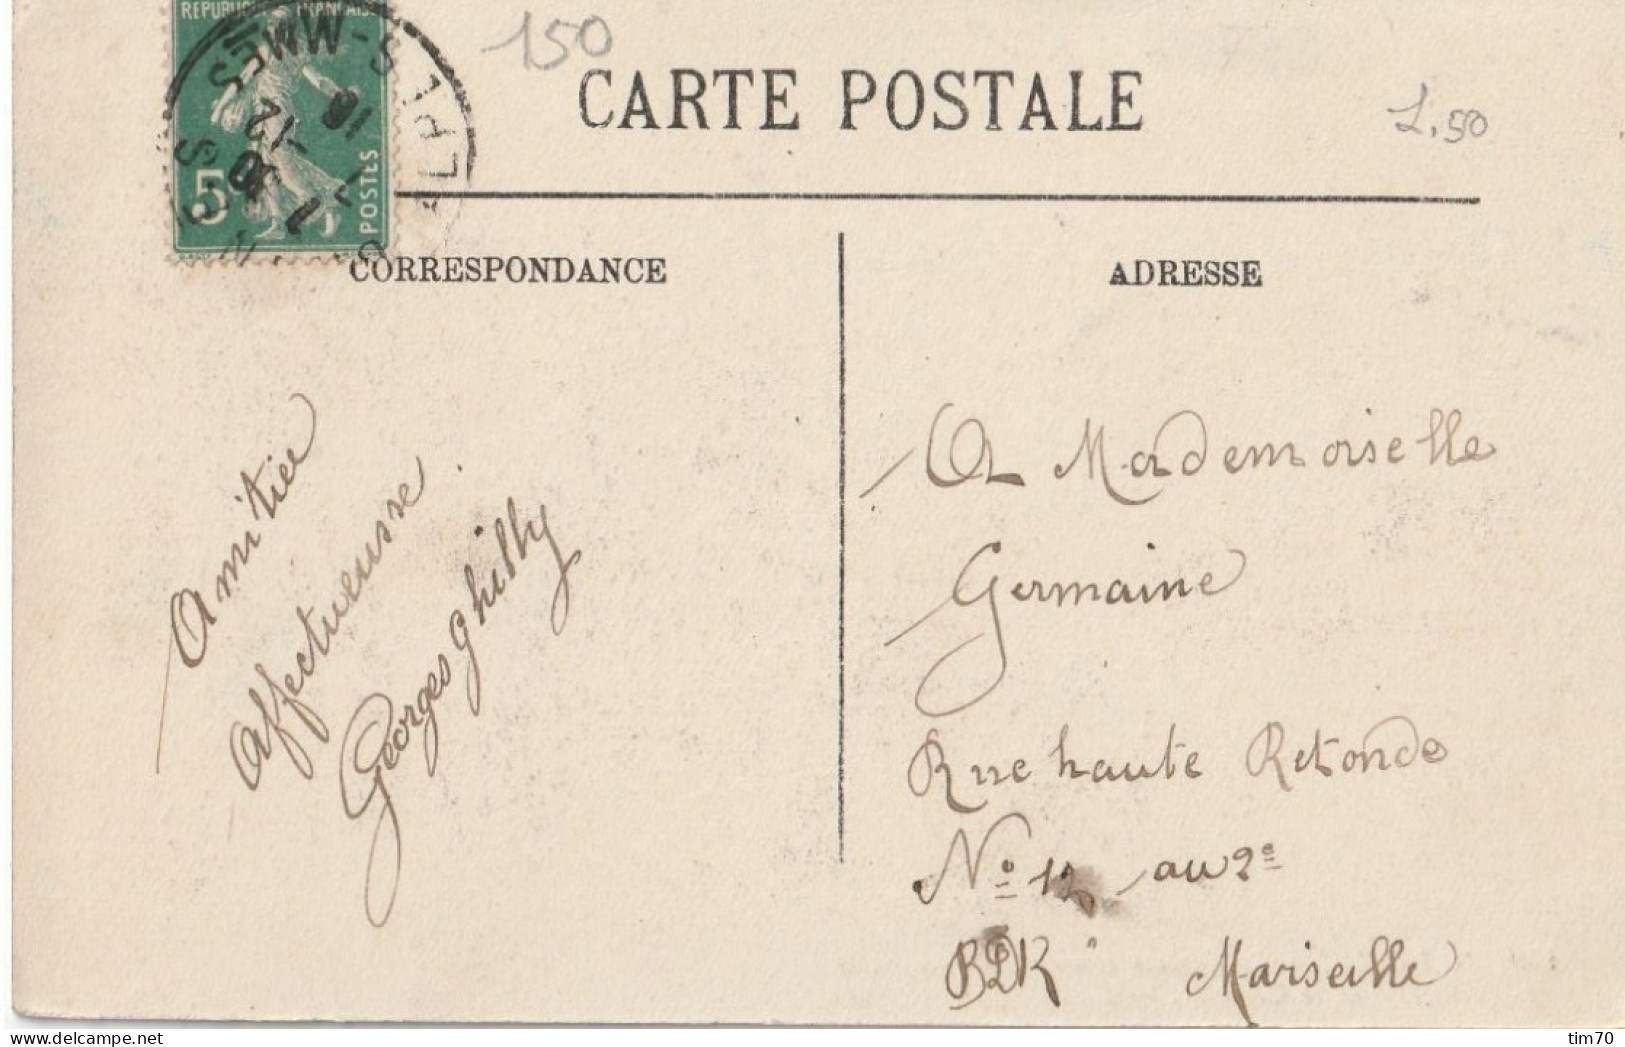 REPUBLIQUE FRANCAISE
5c
POSTES
150
CARTE POSTALE
1.50
CORRESPONDANCE
ADRESSE
Amitiée
Affectueusse.
Georges Ghilly
A Mademoiselle
Germaine
Rue haute Rotonde
No 12 au 2e
BDR Marseille
tim70